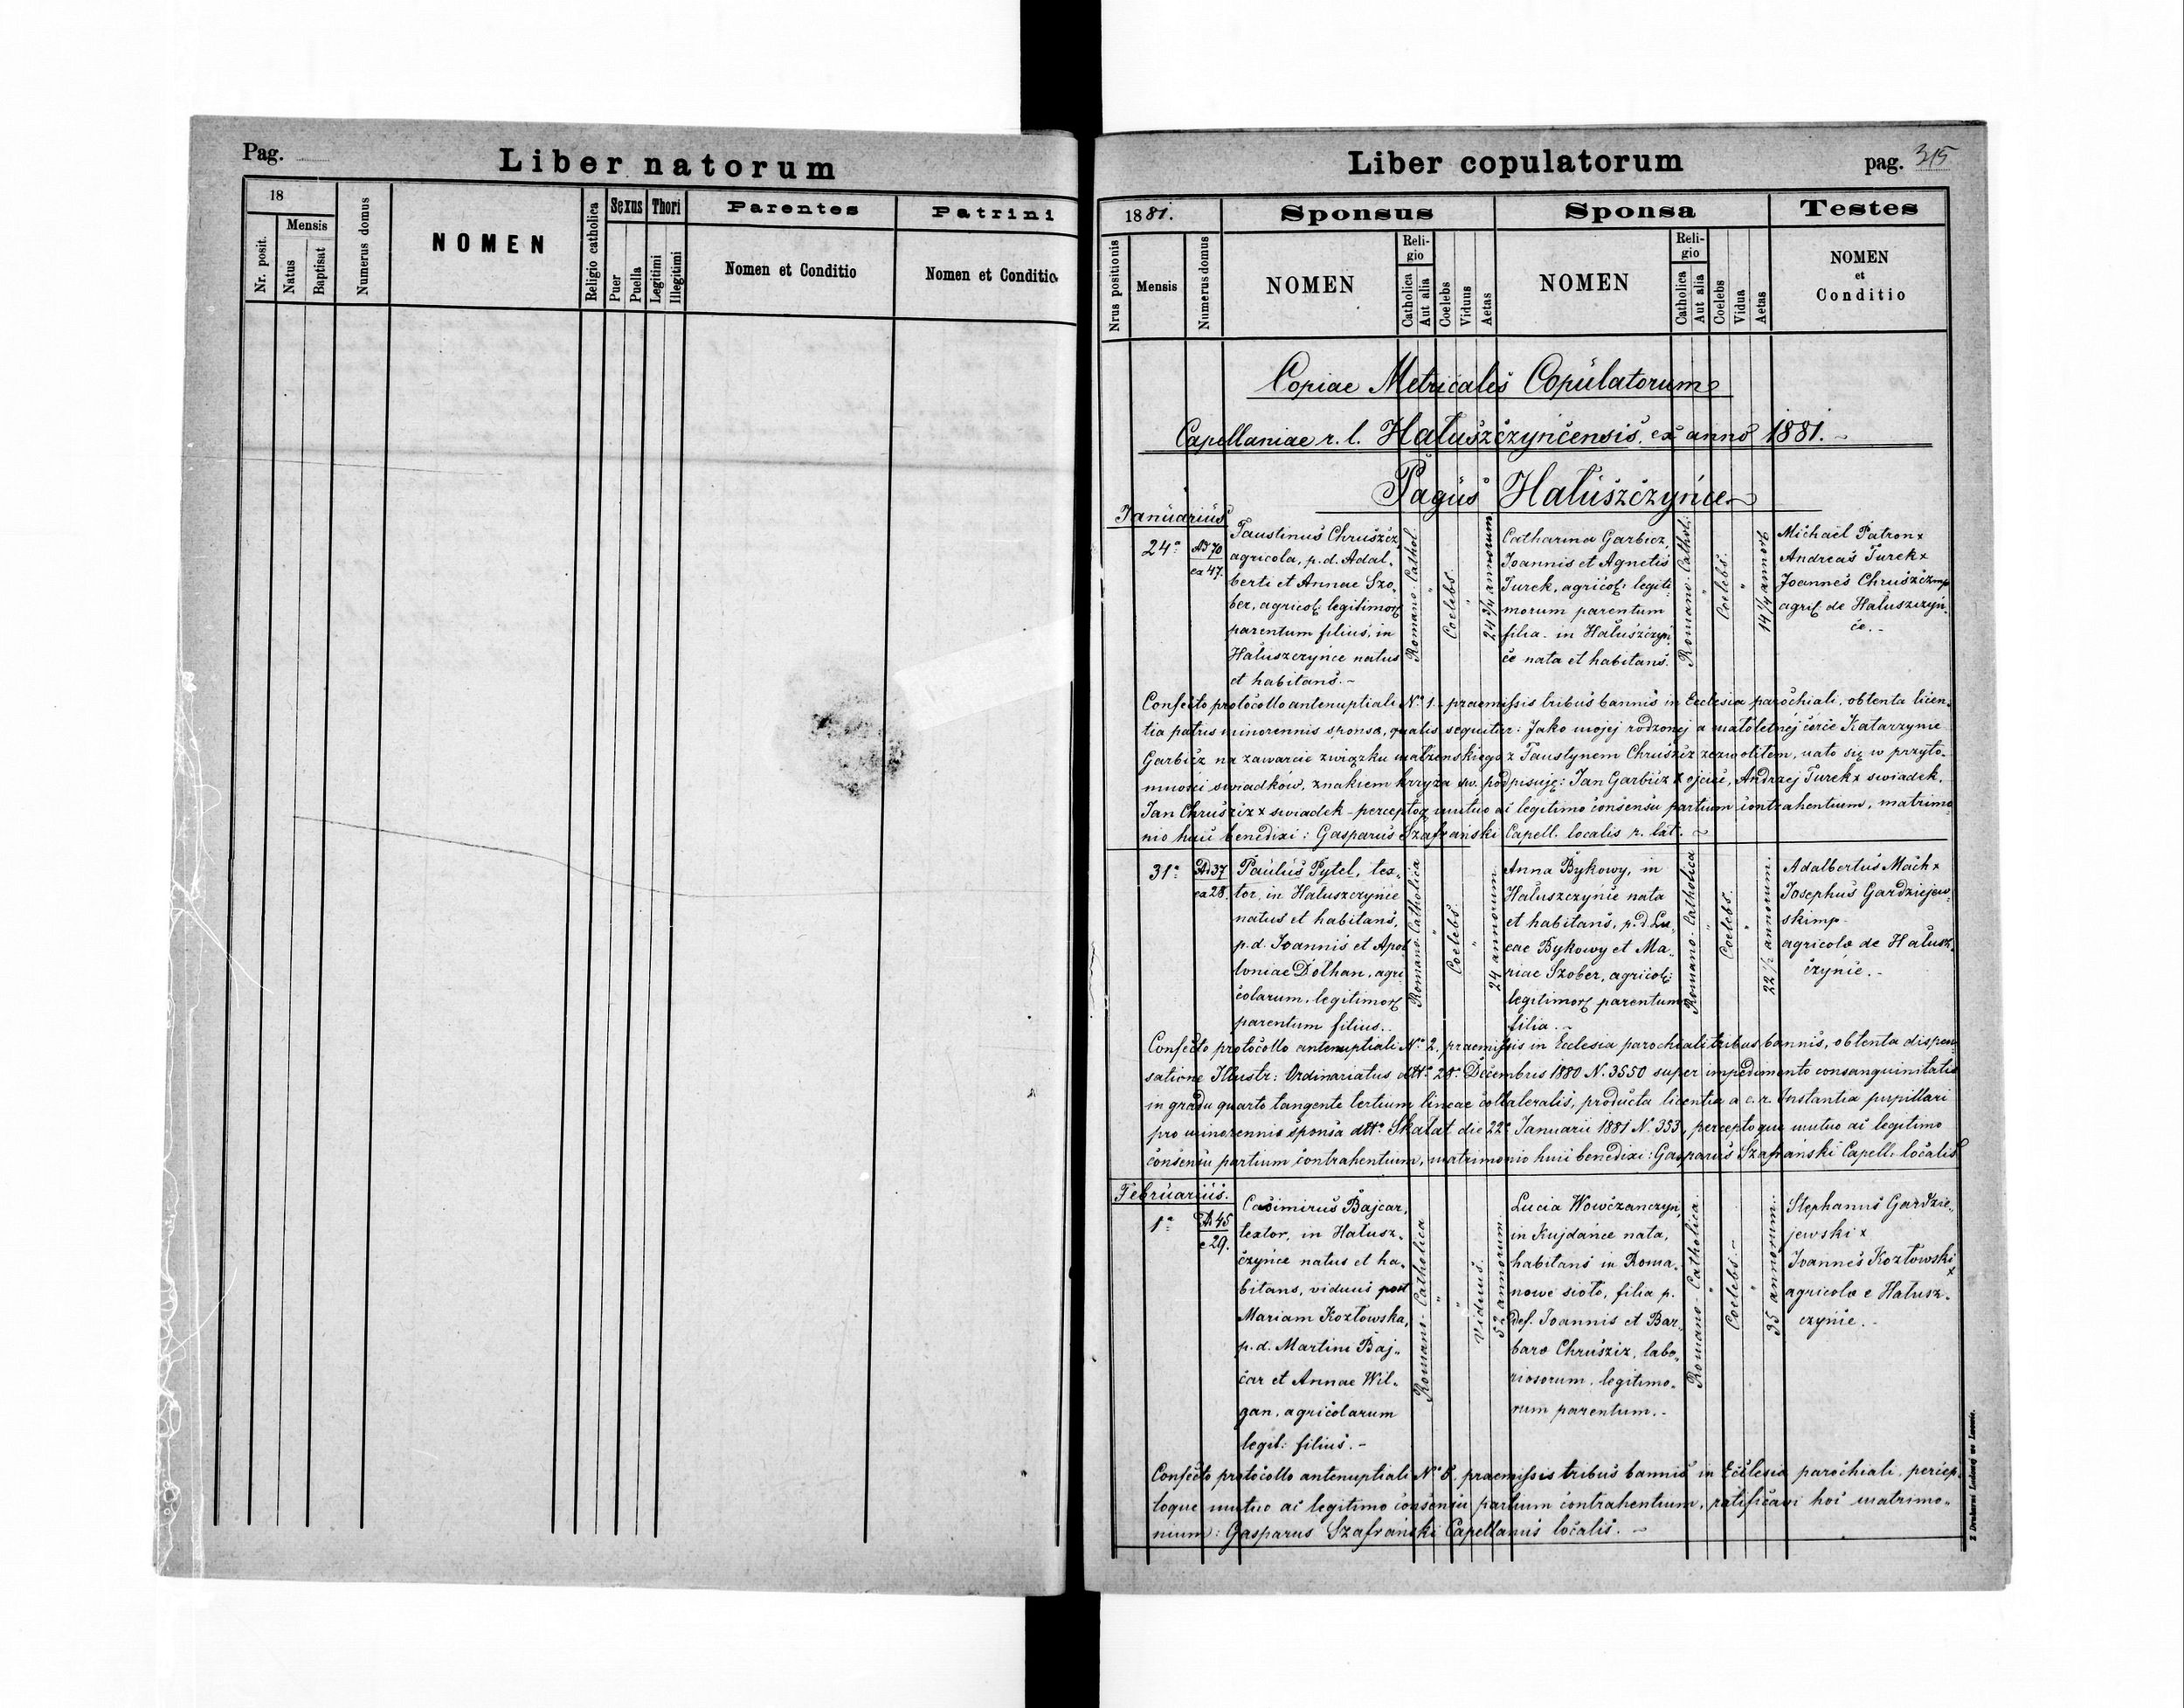 Pag.
Liber natorum
18
Nr. posit.
Mensis
Natus
Baptisat
Numerus domus
NOMEN
Religio catholica
Sexus
Puer
Puella
Thori
Legitimi
Illegitimi
Parentes
Nomen et Conditio
Patrini
Nomen et Conditio
Liber copulatorum
pag. 315
1881.
Nrus positionis
Mensis
Numerus domus
Sponsus
NOMEN
Reli-
gio
Catholica
Aut alia
Coelebs
Viduus
Aetas
Sponsa
NOMEN
Reli-
gio
Catholica
Aut alia
Coelebs
Vidua
Aetas
Testes
NOMEN
et
Conditio
Copiae Metricales Copulatorum
Capellaniae r. l. Hałuszczyńcensis, ex anno 1881.-
Pagus Hałuszczyńce
Januarius
24a
Ad 70
ex 47.
Faustinus Chruszcz
agricola, p. d. Adal-
berti et Annae Szo-
ber, agricol. legitimor
parentum filius, in
Hałuszczyńce natus
et habitans.-
Romano-Cathol.
"
Coelebs.
"
24 3/4 annorum
Catharina Garbicz,
Joannis et Agnetis
Turek, agricol: legiti-
morum parentum
filia. in Hałuszczyń-
ce nata et habitans.
Romano-Cathol:
"
Coelebs.
"
14 1/4 annor
Michael Patron x
Andreas Turek x
Joannes Chruszcz mp
agric de Hałuszczyń-
ce.-
Confecto protocollo antenuptiali No 1. praemissis tribus bannis in Ecclesia parochiali, obtenta licen-
tia patris minorennis sponsa, qualis sequitur: Jako mojej rodzonej a małoletnéj córce Katarzynie
Garbicz na zawarcie związku małżenskiego z Faustynem Chruszcz zezwolilem, nato się w przyto-
mności swiadków, znakiem krzyża sw. podpisuję: Jan Garbicz x ojciec, Andrzej Turek x swiadek,
Jan Chruszcz x swiadek - perceptoq mutuo ac legitimo consensu partium contrahentium, matrimo-
nio huic benedixi: Gasparus Szafrański Capell. localis r. lat.-
31a
Ad 37
ex 28.
Paulus Pytel, tex-
tor, in Hałuszczyńce
natus et habitans,
p. d. Joannis et Apol-
loniae Dołhan, agri-
colarum, legitimor
parentum filius.-
Romano-Catholica
"
Coelebs.
"
24 annorum
Anna Bykowy, in
Hałuszczyńce nata
et habitans, p. d. Lu-
cae Bykowy et Ma-
riae Szober, agricol:
legitimor parentum
filia.-
Romano-Catholica
"
Coelebs.
"
22 1/2 annorum.
Adalbertus Mach x
Josephus Gardziejew-
ski mp
agricolæ de Hałusz-
czyńce.-
Confecto protocollo antenuptiali No 2, praemissis in Ecclesia parochiali tribus bannis, obtenta dispen-
satione Illustr: Ordinariatus dtto 28a Decembris 1880 N. 3550 super impedimento consanguinitatis
in gradu quarto tangente tertium lineae collateralis, producta licentia a c. r. Instantia pupillari
pro minorennis sponsa dtto Skałat die 22a Januarii 1881 N. 353, perceptoque mutuo ac legitimo
consensu partium contrahentium, matrimonio huic benedixi: Gasparus Szafrański Capell. localis
Februarius.
1a
Ad 45
e 29.
Casimirus Bajcar,
textor, in Hałusz-
czyńce natus et ha-
bitans, viduus post
Mariam Kozłowska,
p. d. Martini Baj-
car et Annae Wil-
gan, agricolarum
legit: filius.-
Romano-Catholica
"
"
Viduus.
52 annorum
Lucia Wowczanczyn,
in Kujdańce nata,
habitans in Roma-
nowe sioło, filia p.
def. Joannis et Bar-
baræ Chruszcz, labo-
riosorum, legitimo-
rum parentum.-
Romano-Catholica
"
Coelebs.-
"
35 annorum.
Stephanus Gardzie-
jewski x
Joannes Kozłowski x
agricolæ e Hałusz-
czyńce.-
Confecto protocollo antenuptiali No 5. praemissis tribus bannis in Ecclesia parochiali, percep-
toque mutuo ac legitimo consensu partium contrahentium, ratificavi hoc matrimo-
nium: Gasparus Szafrański Capellanus localis.-
Z Drukarni Ludowej we Lwowie.